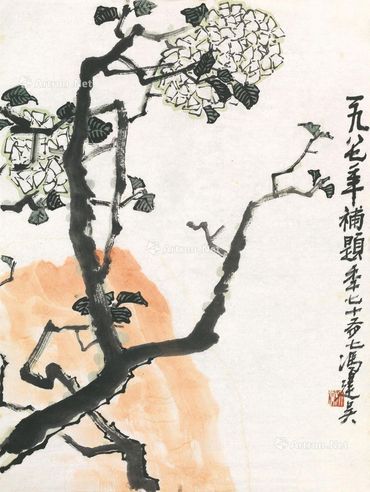 一九八七年補題年七十有七馮建吳
Artron.Net
Artron.Net
Artron.Net
Artron.Net